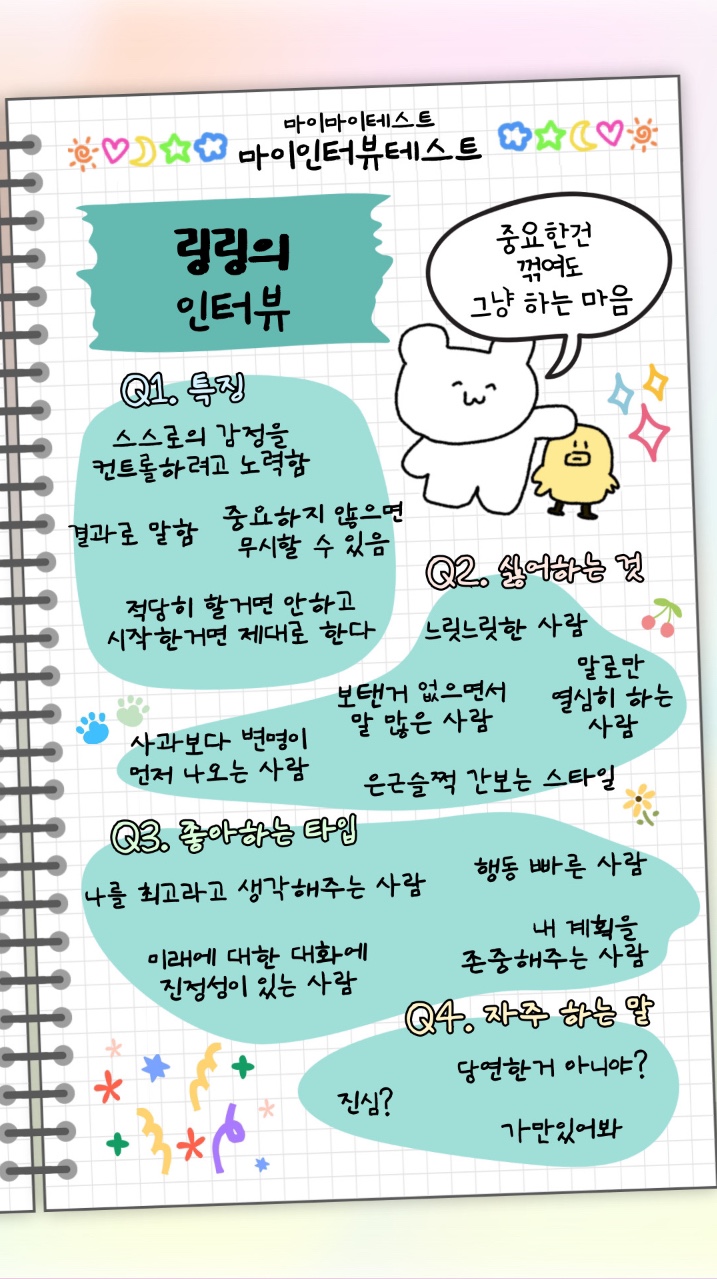 마이마이테스트
마이인터뷰테스트
링링의
인터뷰
중요한건
꺾여도
그냥 하는 마음
Q1. 특징
스스로의 감정을
컨트롤하려고 노력함
결과로 말함
중요하지 않으면
무시할 수 있음
적당히 할거면 안하고
시작한거면 제대로 한다
Q2. 싫어하는 것
느릿느릿한 사람
말로만
열심히 하는
사람
보탠거 없으면서
말 많은 사람
사과보다 변명이
먼저 나오는 사람
은근슬쩍 간보는 스타일
Q3. 좋아하는 타입
나를 최고라고 생각해주는 사람
행동 빠른 사람
내 계획을
존중해주는 사람
미래에 대한 대화에
진정성이 있는 사람
Q4. 자주 하는 말
당연한거 아니야?
진심?
가만있어봐